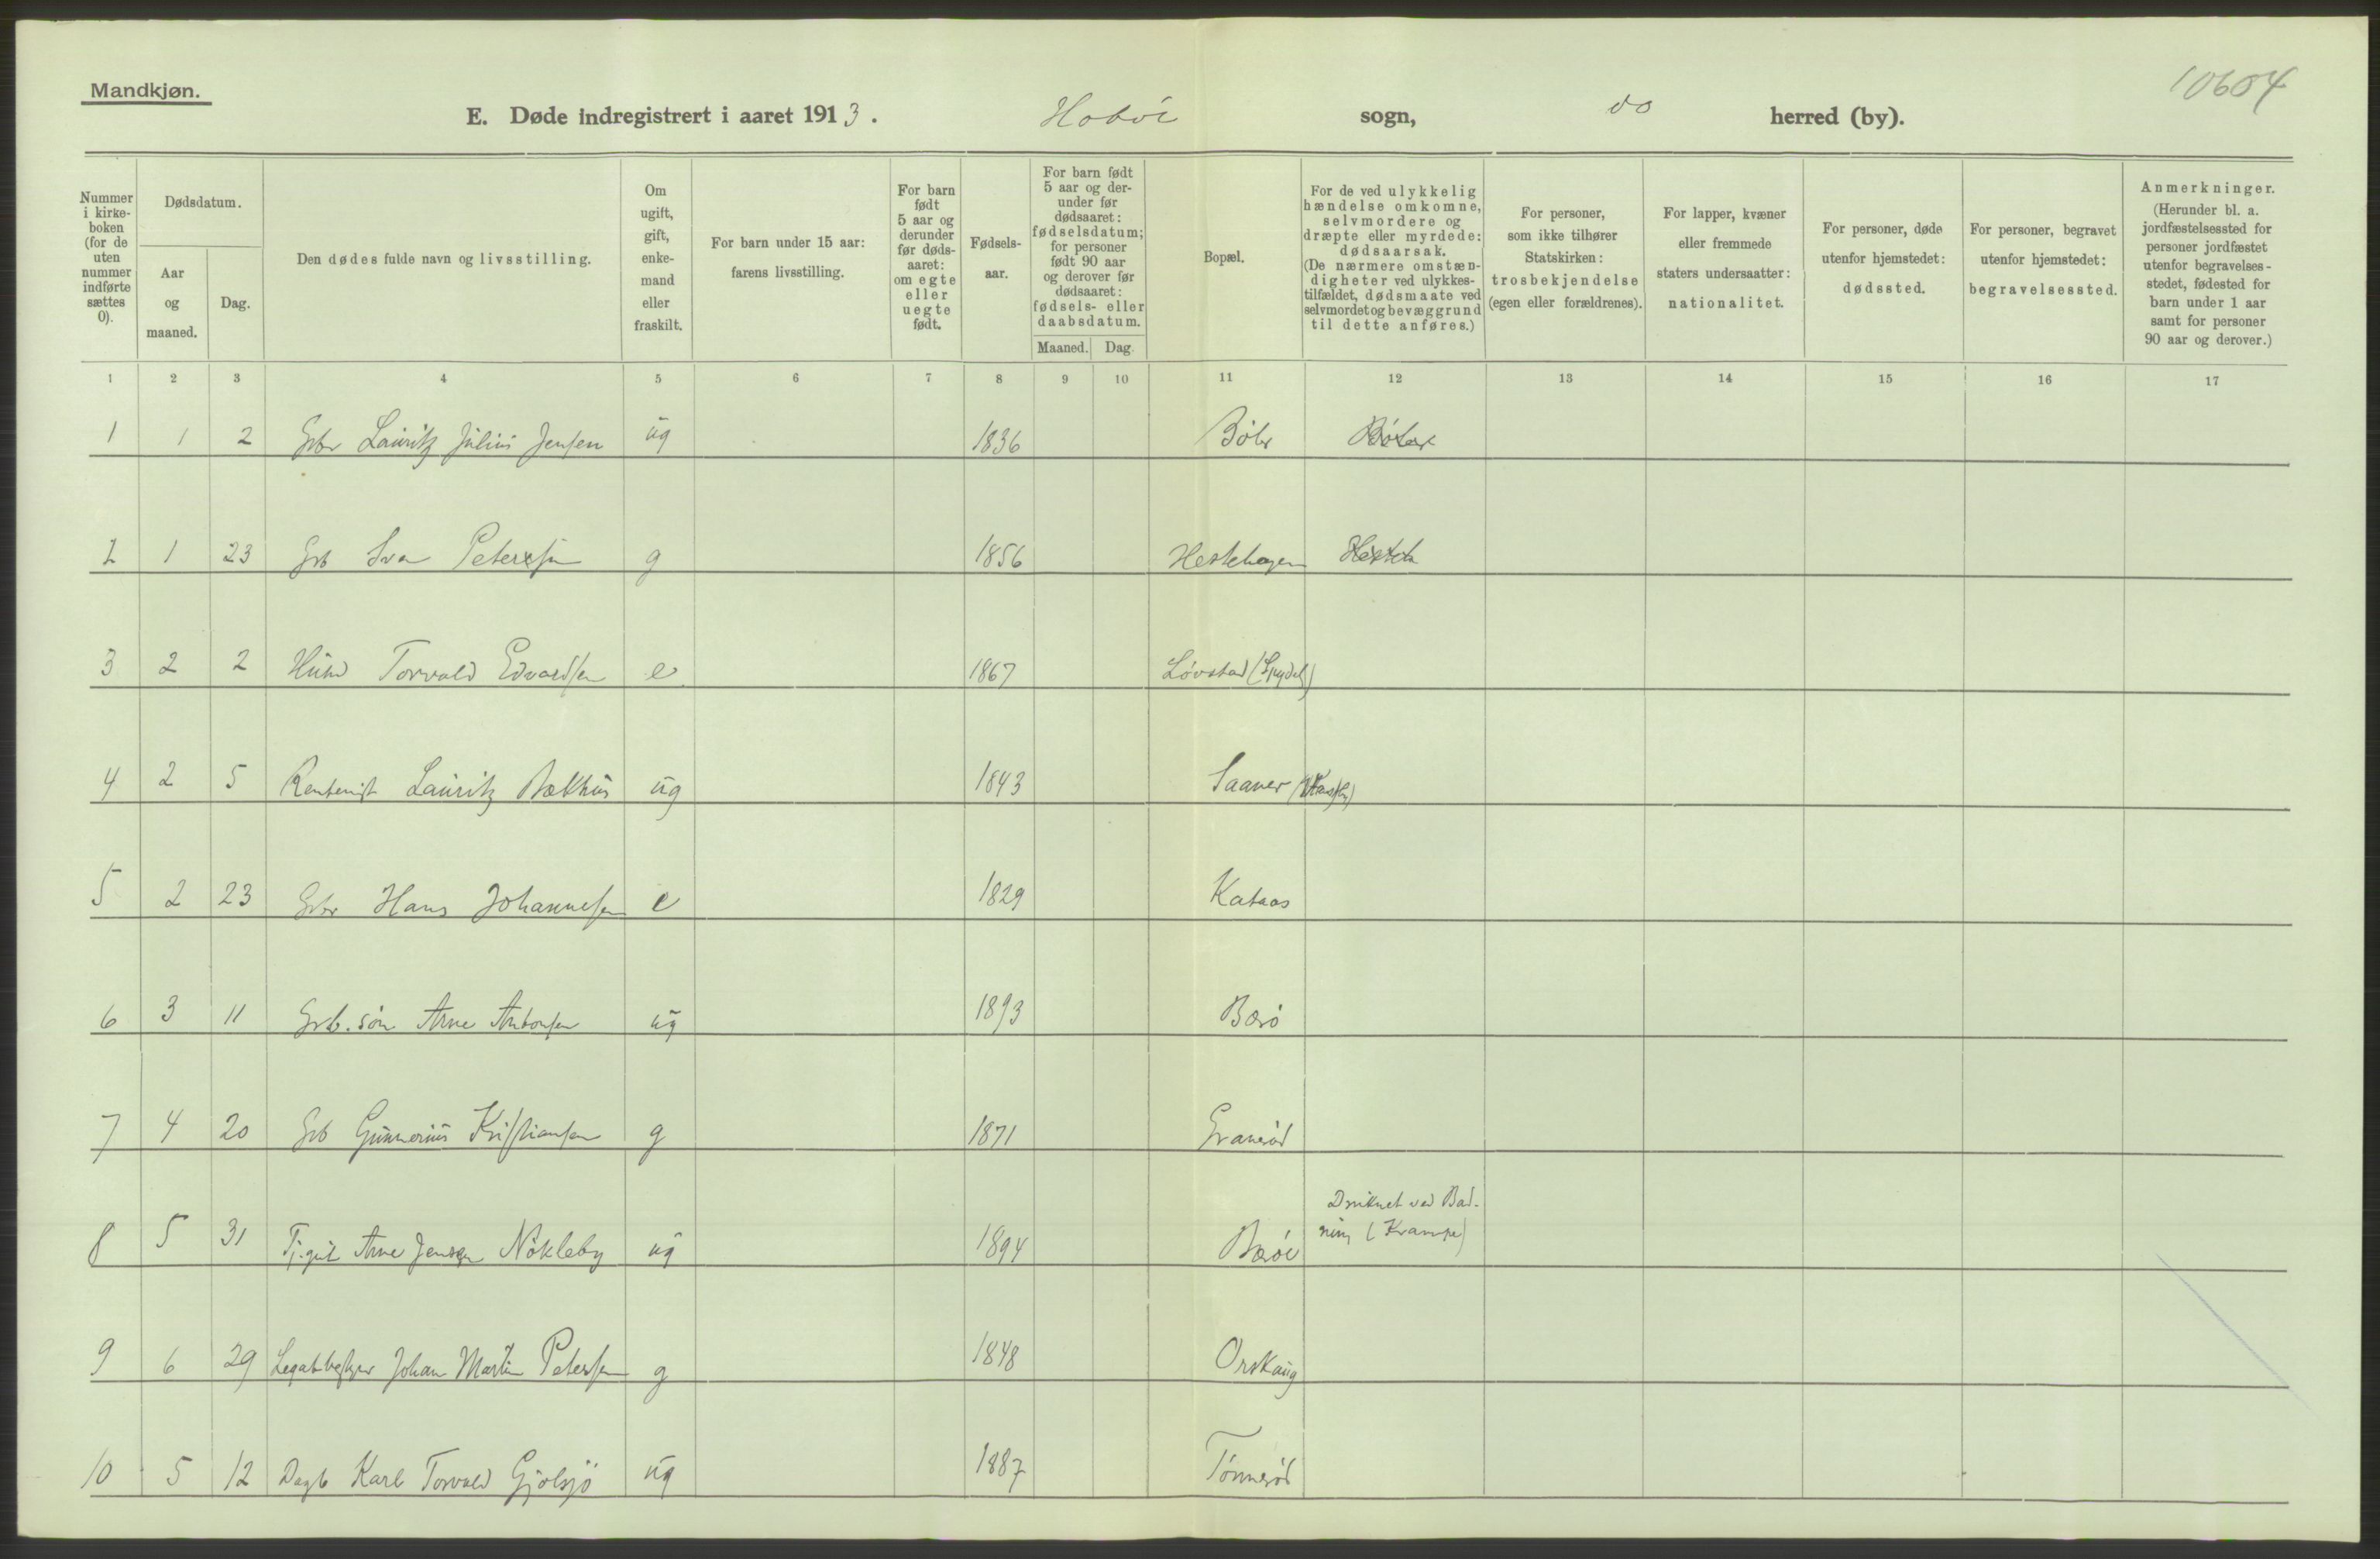 Mandkjøn.
10604
E. Døde indregistrert i aaret 1913. Hobøl sogn, do herred (by).
Nummer i kirke- boken (for de uten nummer indførte sættes 0).
Dødsdatum.
Aar og maaned.
Dag.
Den dødes fulde navn og livsstilling.
Om ugift, gift, enke- mand eller fraskilt.
For barn under 15 aar: farens livsstilling.
For barn født 5 aar og derunder før døds- aaret: om egte eller uegte født.
Fødsels- aar.
For barn født 5 aar og der- under før dødsaaret: fødselsdatum; for personer født 90 aar og derover før dødsaaret: fødsels- eller daabsdatum.
Maaned. Dag.
Bopæl.
For de ved ulykkelig hændelse omkomne, selvmordere og dræpte eller myrdede: dødsaarsak. (De nærmere omstæn- digheter ved ulykkes- tilfældet, dødsmaate ved selvmordet og bevæggrund til dette anføres.)
For personer, som ikke tilhører Statskirken: trosbekjendelse (egen eller forældrenes).
For lapper, kvæner eller fremmede staters undersaatter: nationalitet.
For personer, døde utenfor hjemstedet: dødssted.
For personer, begravet utenfor hjemstedet: begravelsessted.
Anmerkninger. (Herunder bl. a. jordfæstelsessted for personer jordfæstet utenfor begravelses- stedet, fødested for barn under 1 aar samt for personer 90 aar og derover.)
1 2 3 4 5 6 7 8 9 10 11 12 13 14 15 16 17
1 1 2 Gbr Lauritz Julius Jensen ug 1836
2 1 23 Gb Petersen g 1856 Hestehagen
3 2 2 Husm Torvald Edvardsen e 1867 Løvstad (Spydeb)
4 2 5 Rentenist Lauritz Bækhus ug 1843 Saaner
5 2 23 Gbr Hans Johannesen e 1829 Kataas
6 3 11 Grb. søn Arne Antonsen ug 1893
7 4 20 Gb Gunnerius Kristiansen g 1871 Granerød
8 5 31 Tj.gut Arne Jensen Nökleby ug 1894 Druknet ved Bad-
ning (Krampe)
9 6 29 Johan Martin Petersen g 1848 Orskaug
10 5 12 Dagb Karl Torvald Gjølsjø ug 1887 Tönnerød